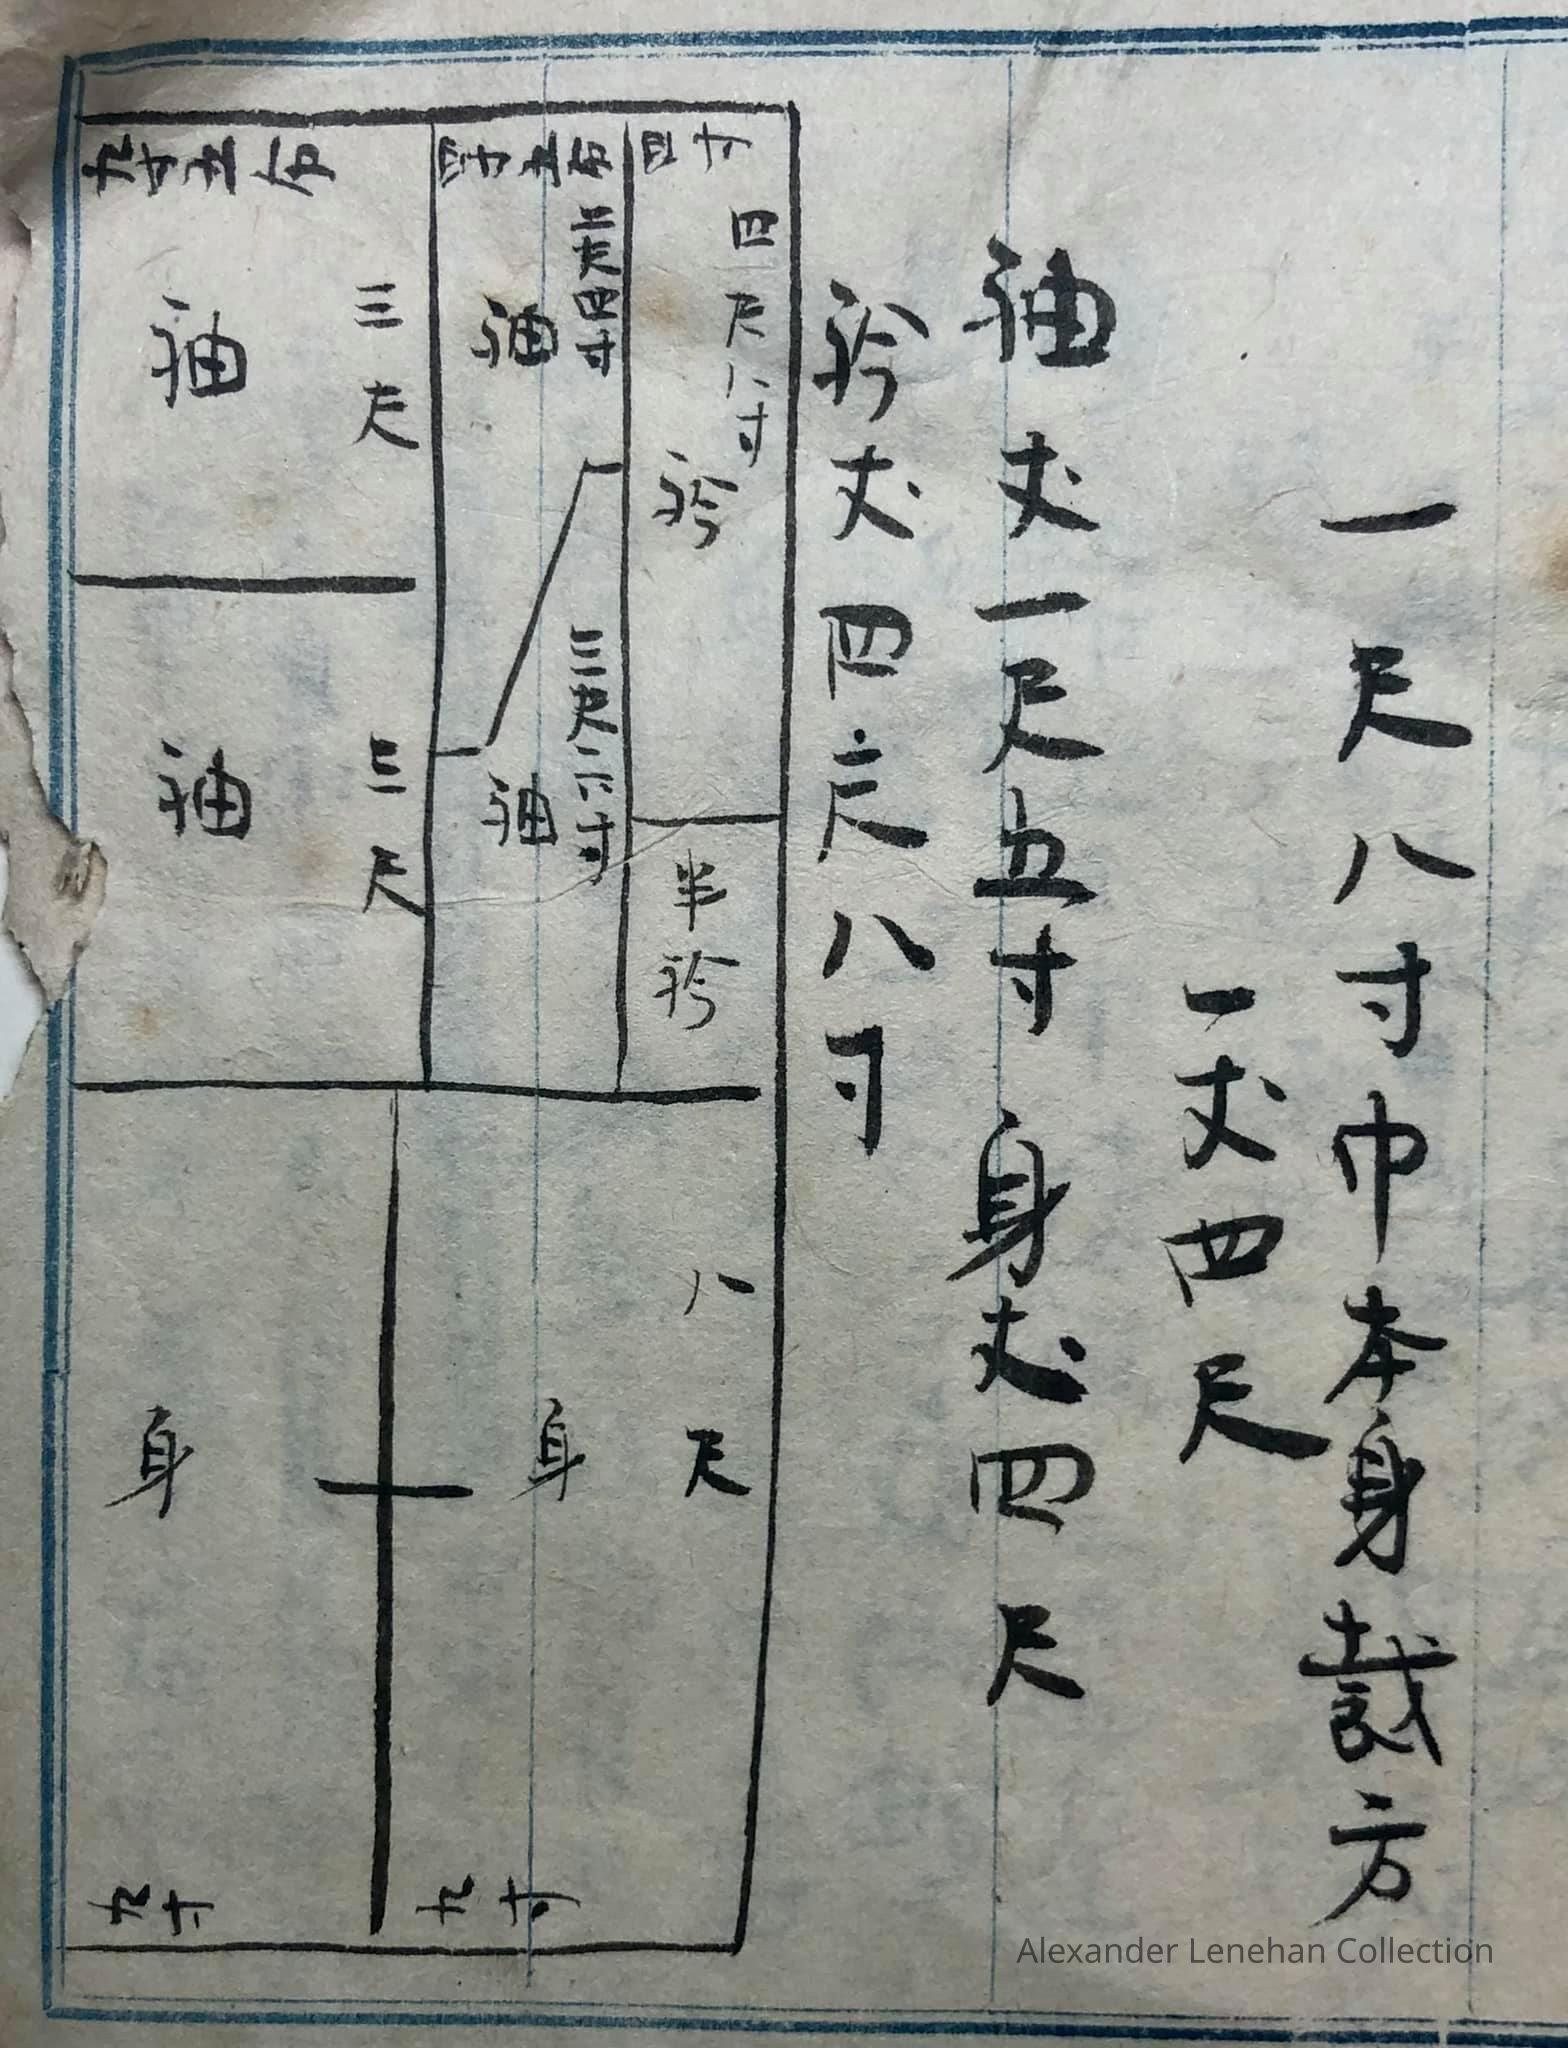 一尺八寸巾本身裁方
一丈四尺
袖丈一尺五寸 身丈四尺
衿丈四尺八寸
四寸
四尺八寸
衿
半衿
四寸五分
二尺四寸
袖
三尺六寸
袖
九寸五分
三尺
袖
三尺
袖
八尺
身
九寸
身
九寸
Alexander Lenehan Collection